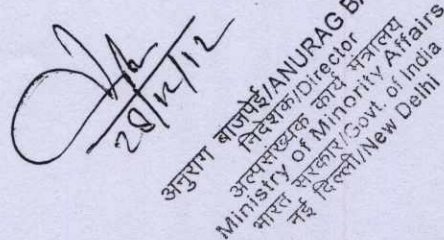 28/12/12
अनुराग बाजपेई/ANURAG
निदेशक/Director
अल्पसंख्यक कार्य मंत्रालय
Ministry of Minority Affairs
भारत सरकार/Govt. of India
नई दिल्ली/New Delhi